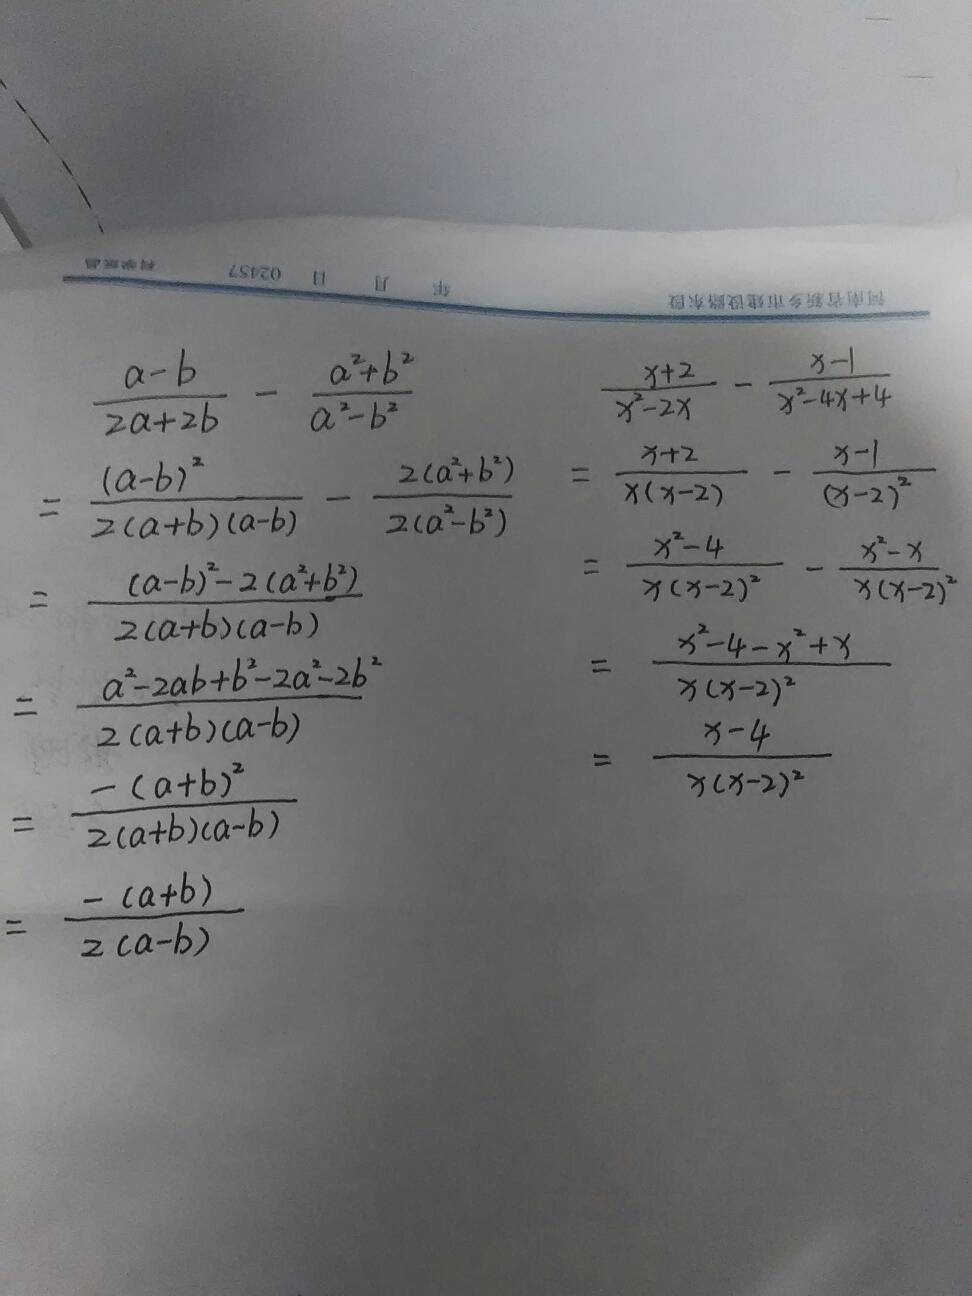 河南省新乡市建设路东段
年 月 日 02457
科学求是
a-b/2a+2b - a²+b²/a²-b²
= (a-b)²/2(a+b)(a-b) - 2(a²+b²)/2(a²-b²)
= (a-b)²-2(a²+b²)/2(a+b)(a-b)
= a²-2ab+b²-2a²-2b²/2(a+b)(a-b)
= -(a+b)²/2(a+b)(a-b)
= -(a+b)/2(a-b)
x+2/x²-2x - x-1/x²-4x+4
= x+2/x(x-2) - x-1/(x-2)²
= x²-4/x(x-2)² - x²-x/x(x-2)²
= x²-4-x²+x/x(x-2)²
= x-4/x(x-2)²